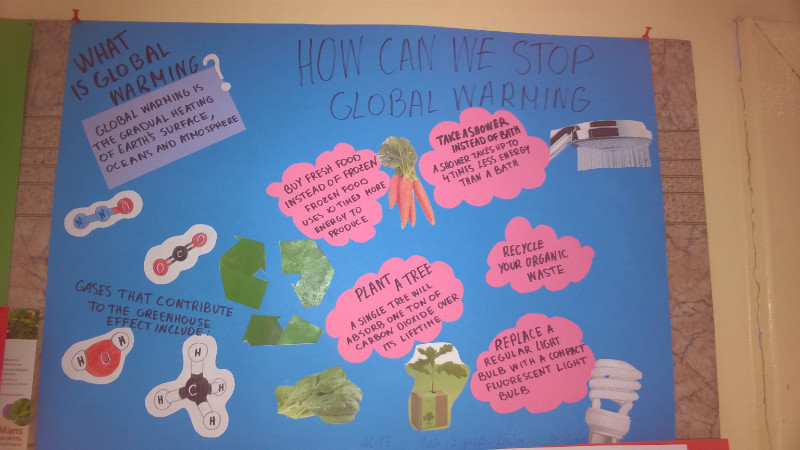 WHAT
IS GLOBAL
WARMING?
GLOBAL WARMING IS
THE GRADUAL HEATING
OF EARTH'S SURFACE,
OCEANS AND ATMOSPHERE
HOW CAN WE STOP
GLOBAL WARMING
BUY FRESH FOOD
INSTEAD OF FROZEN
FROZEN FOOD
USES 10 TIMES MORE
ENERGY TO
PRODUCE
TAKE A SHOWER
INSTEAD OF BATH
A SHOWER TAKES UP TO
4 TIMES LESS ENERGY
THAN A BATH
N N O
O C O
GASES THAT CONTRIBUTE
TO THE GREENHOUSE
EFFECT INCLUDE:
H O H
H
H C H
H
PLANT A TREE
A SINGLE TREE WILL
ABSORB ONE TON OF
CARBON DIOXIDE OVER
ITS LIFETIME
RECYCLE
YOUR ORGANIC
WASTE
REPLACE A
REGULAR LIGHT
BULB WITH A COMPACT
FLUORESCENT LIGHT
BULB
2017
Mans